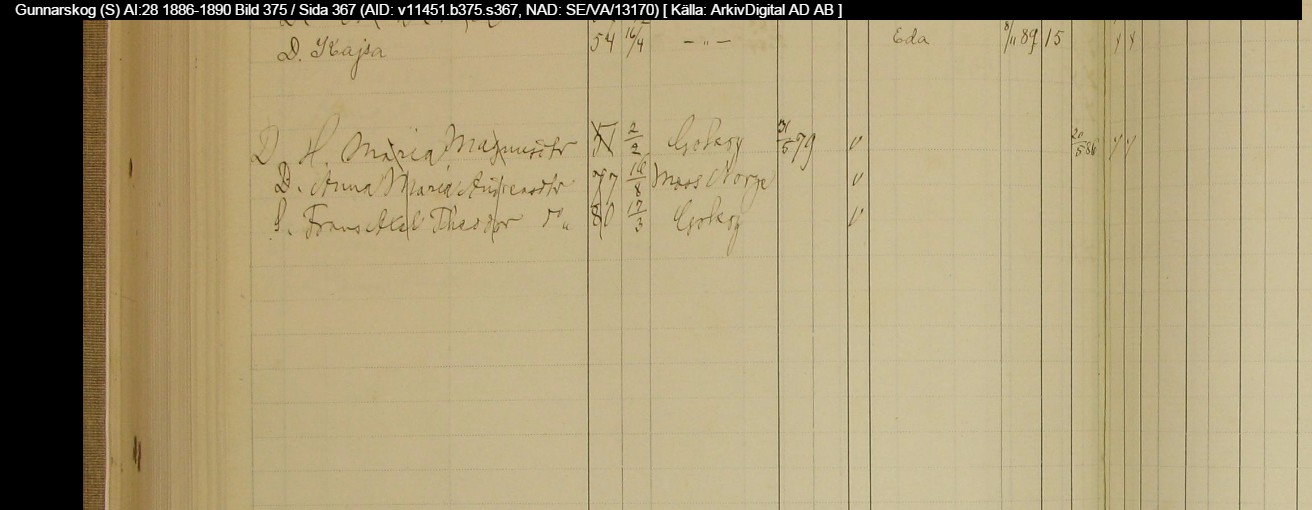 Gunnarskog (S) AI:28 1886-1890 Bild 375 / Sida 367 (AID: v11451.b375.s367, NAD: SE/VA/13170) [ Källa: ArkivDigital AD AB ]
D. Kajsa 54 16/4 -"- Eda 8/11 89 15
D. H. Maria Magnusdtr 51 2/2 Gskog 31/5 79 v 20/5 86
D. Anna Maria Andersdtr 77 16/8 Moss Norge v
S. Frans Axel Theodor 80 17/3 Gskog v